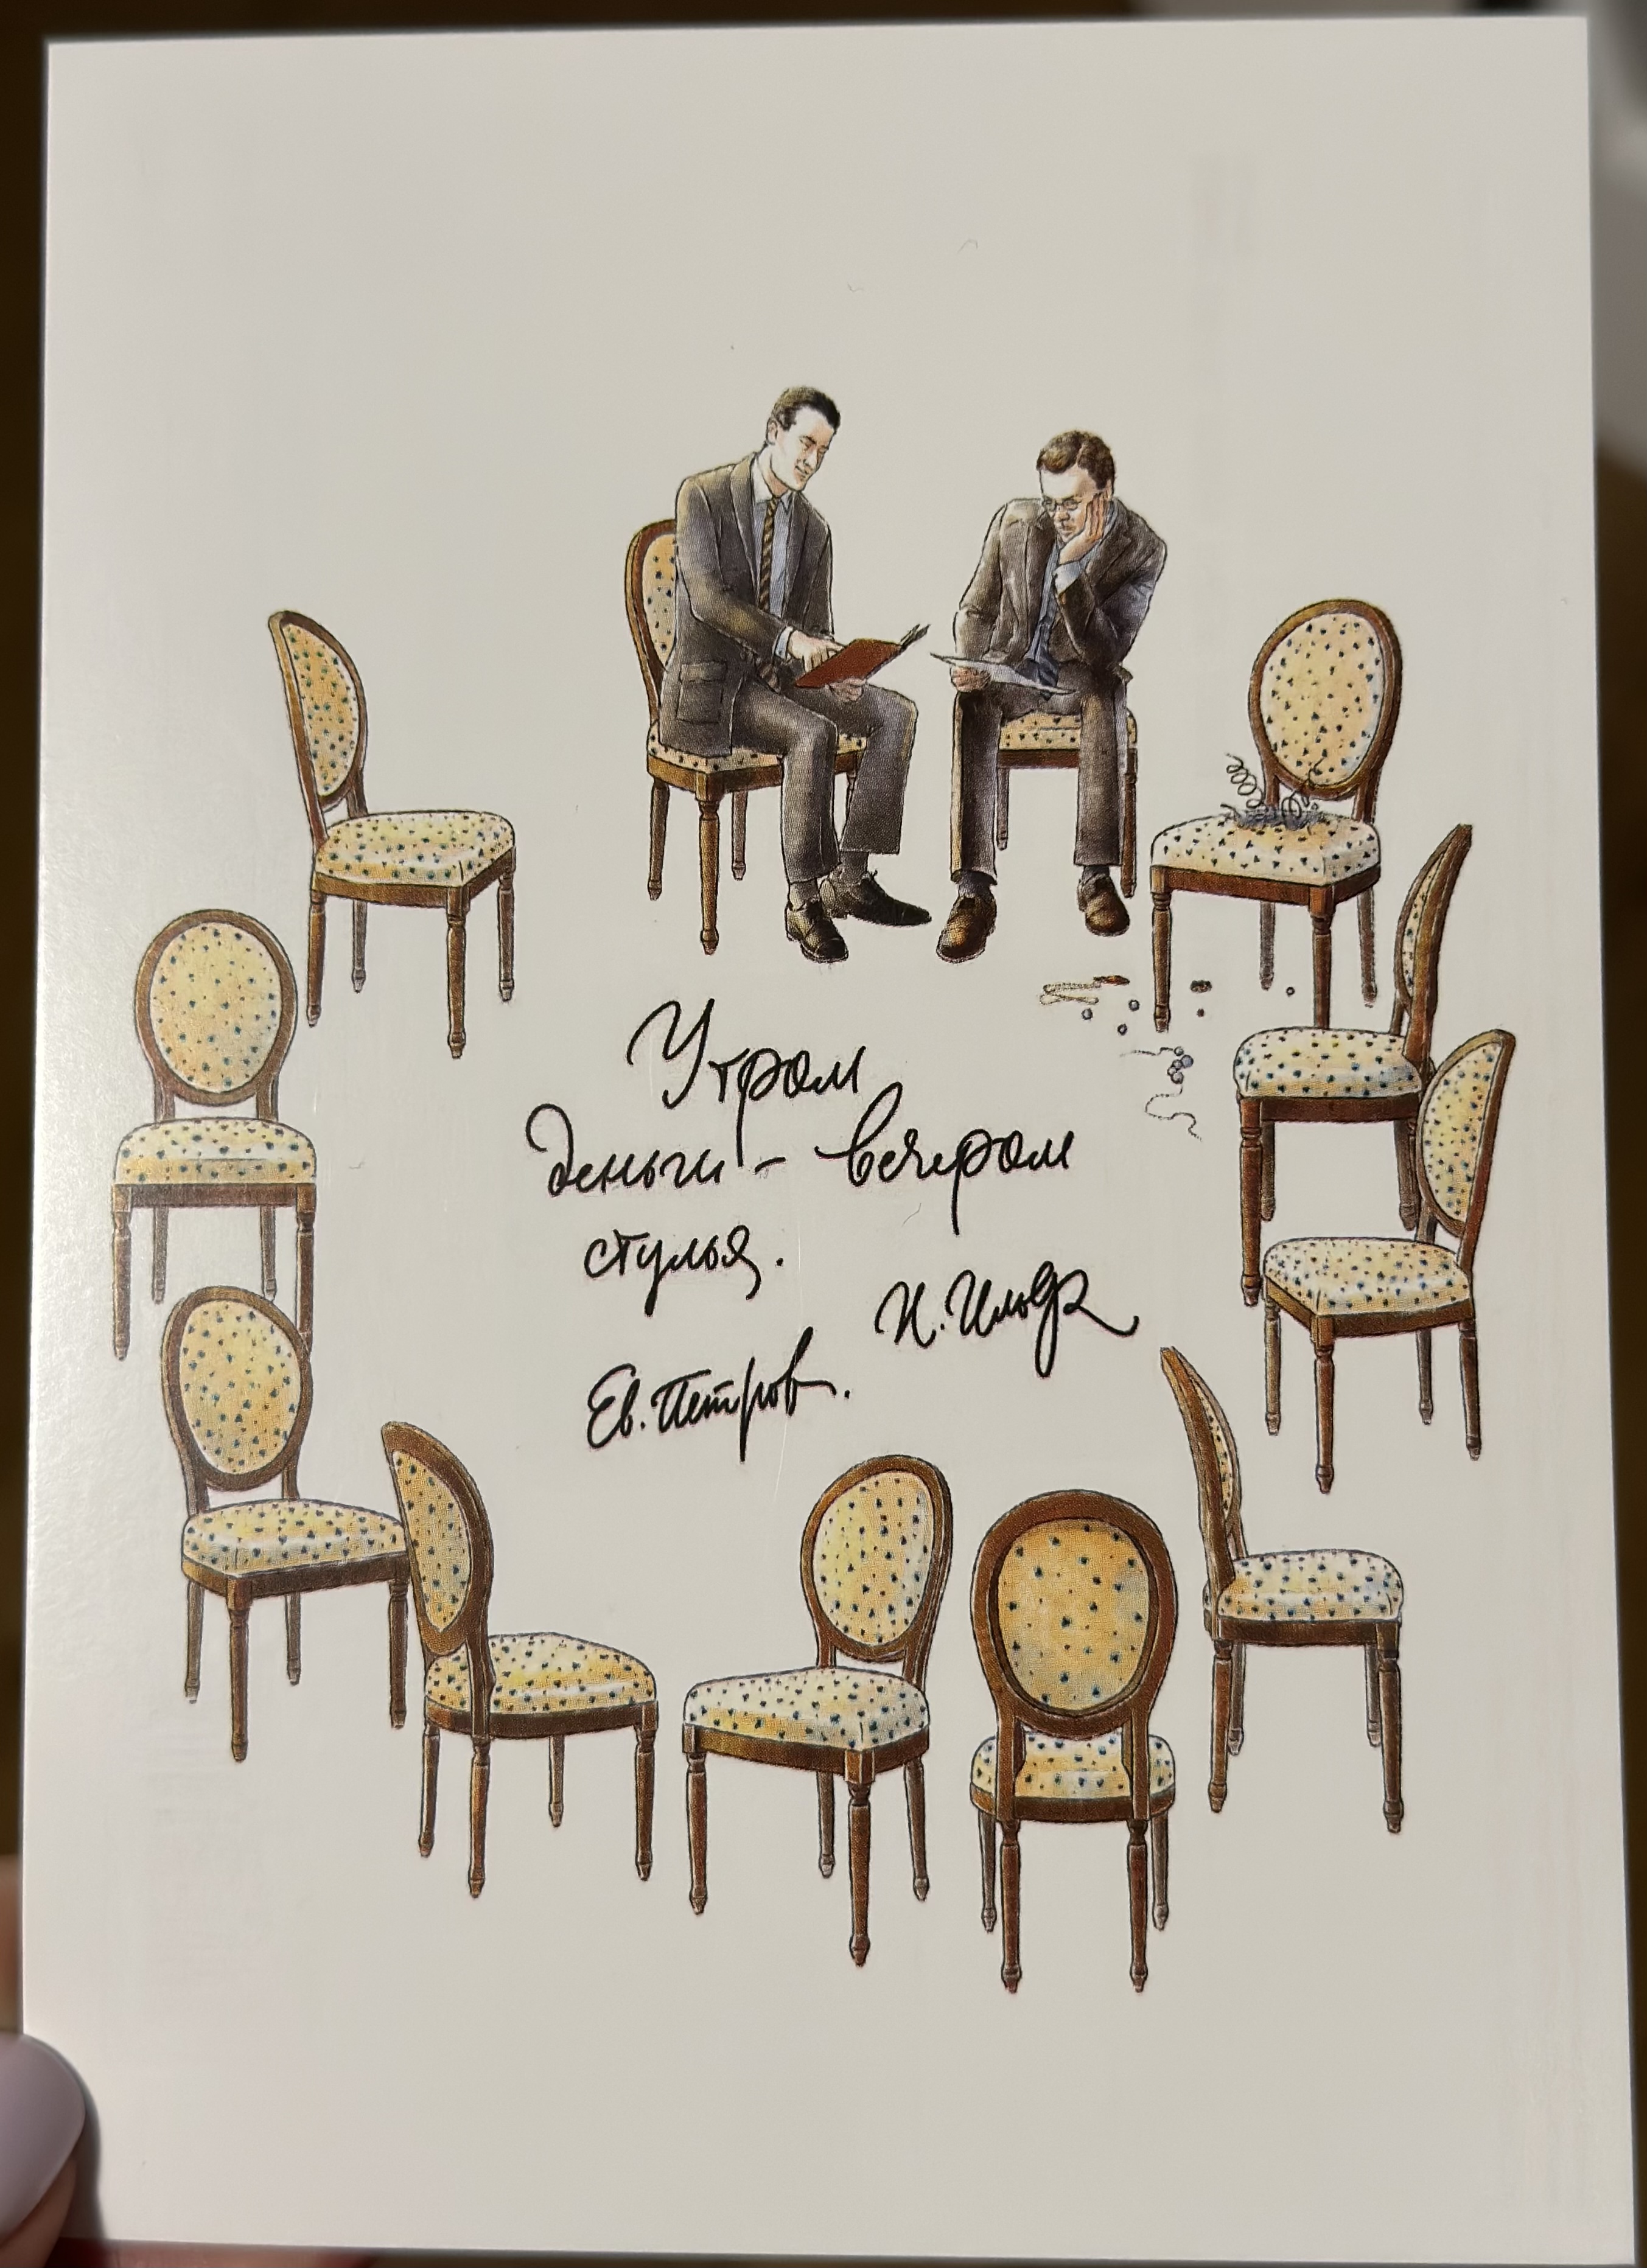 Утром
деньги - вечером
стулья.
И. Ильф
Ев. Петров.